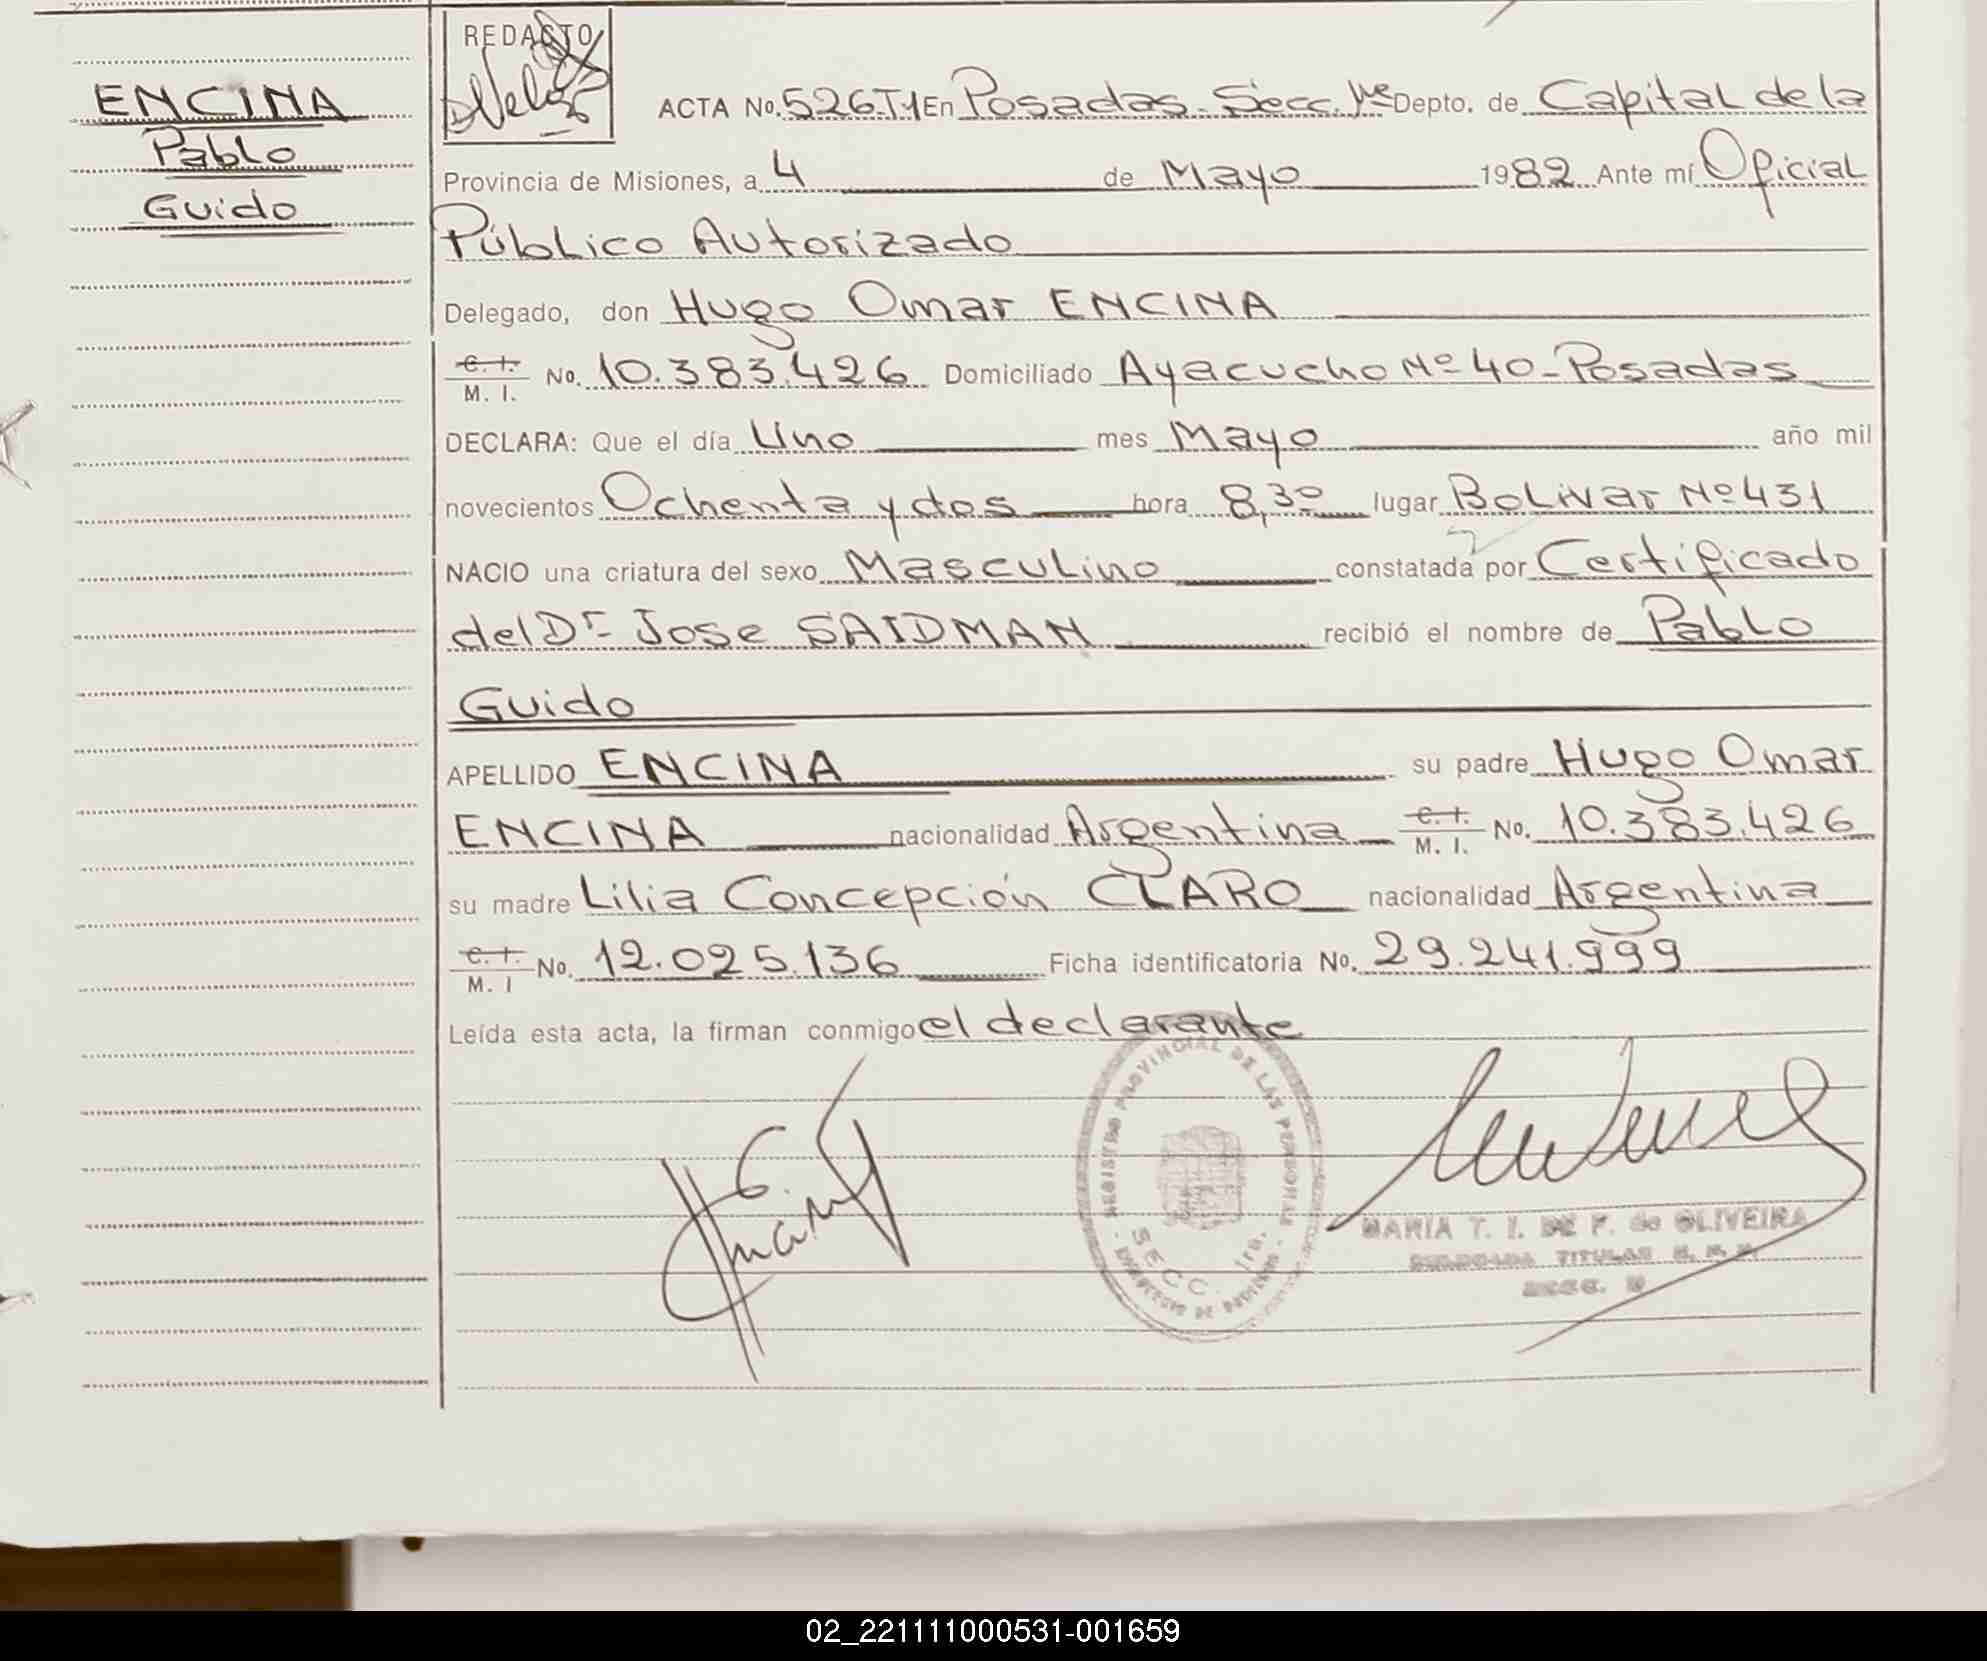 REDACTO
ENCINA
Pablo
Guido
ACTA No. 526-T1 En Posadas. Secc. 1ra Depto. de Capital de la
Provincia de Misiones, a 4 de Mayo 1982 Ante mí Oficial
Público Autorizado
Delegado, don Hugo Omar ENCINA
C. I. M. I. No. 10.383.426 Domiciliado Ayacucho Nº 40-Posadas
DECLARA: Que el día Uno mes Mayo año mil
novecientos Ochenta y dos hora 8,30 lugar Bolivar Nº 431
NACIO una criatura del sexo Masculino constatada por Certificado
del Dr Jose SAIDMAN recibió el nombre de Pablo
Guido
APELLIDO ENCINA su padre Hugo Omar
ENCINA nacionalidad Argentina C. I. M. I. No. 10.383.426
su madre Lilia Concepción CLARO nacionalidad Argentina
C. I. M. I No. 12.025.136 Ficha identificatoria No. 29.241.999
Leída esta acta, la firman conmigo el declarante
REGISTRO PROVINCIAL DE LAS PERSONAS
SECC. 1ra.
MARIA T. I. DE F. de OLIVEIRA
DELEGADA TITULAR
SECC.
02_221111000531-001659